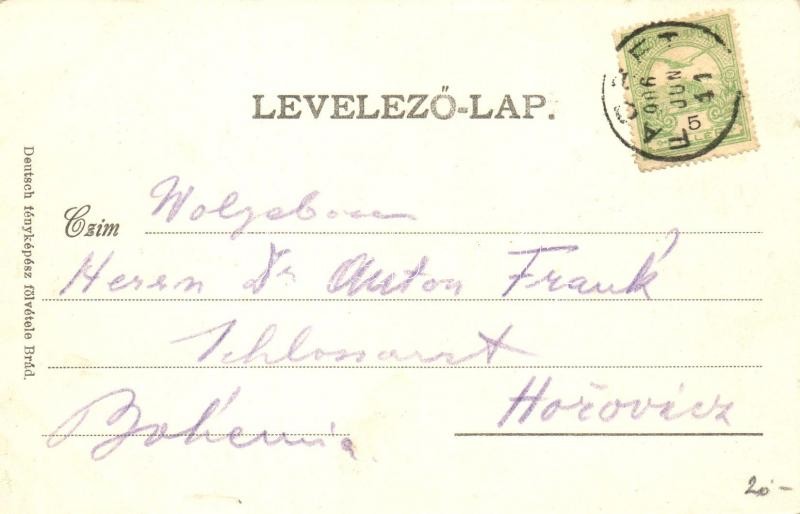 LEVELEZŐ-LAP.
Czim
Herrn Dr Anton Frank
Schlossarzt
Hořovicz
Bohemia
Deutsch fényképész fölvétele Brád.
20-